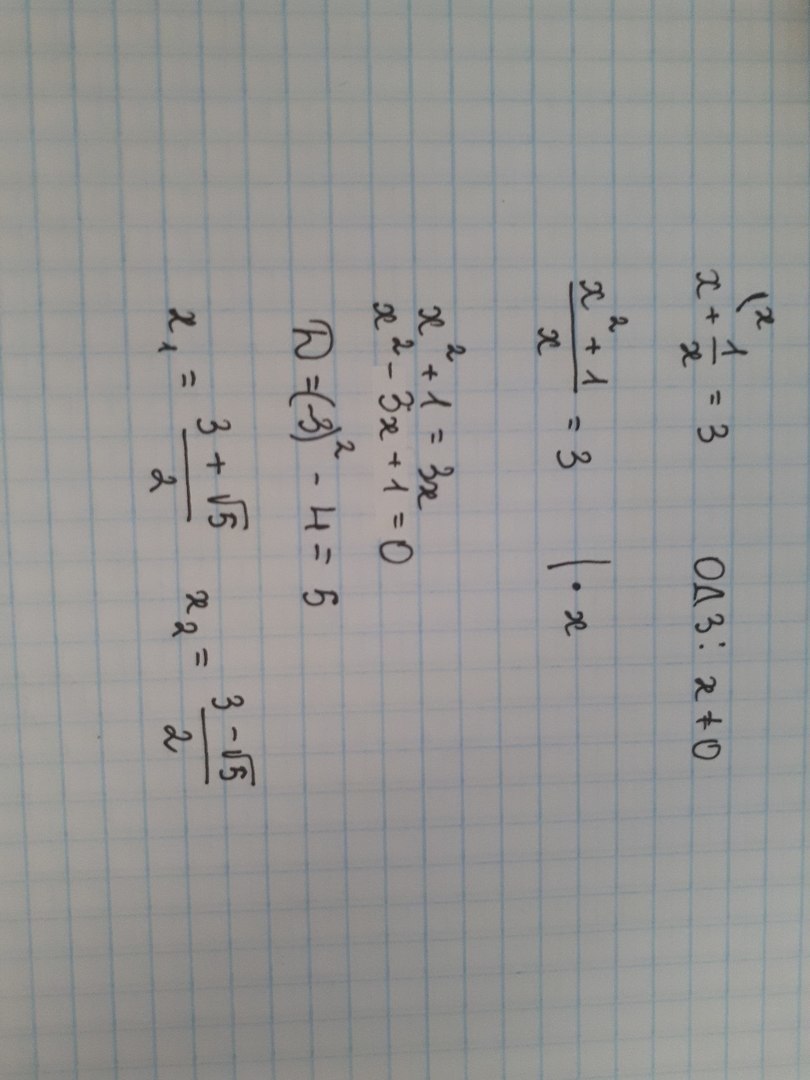 (x
x + 1/x = 3 ОДЗ: x ≠ 0
(x² + 1)/x = 3 | · x
x² + 1 = 3x
x² - 3x + 1 = 0
D = (-3)² - 4 = 5
x₁ = (3 + √5)/2 x₂ = (3 - √5)/2